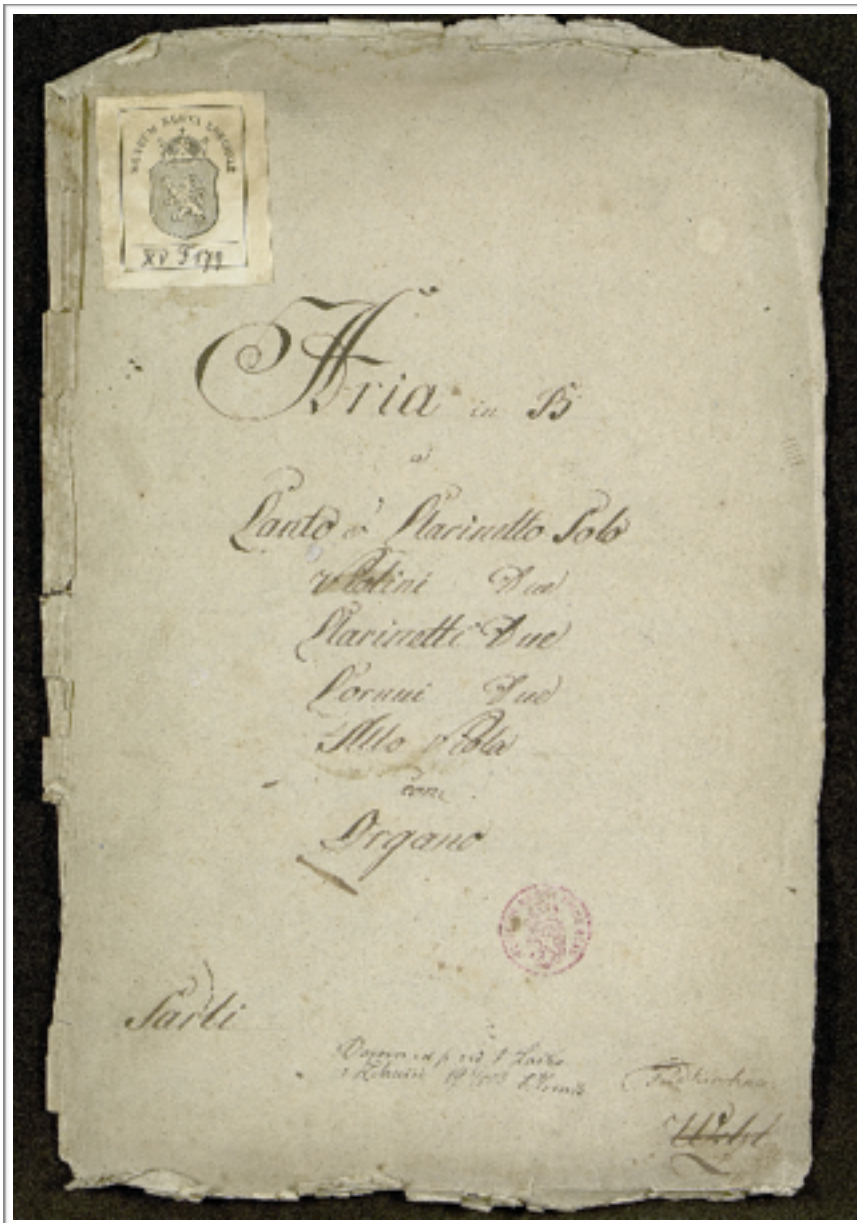 MUSEUM REGNI BOHEMIAE
XV F 179
Aria in B
a
Canto è Clarinetto Solo
Violini Due
Clarinetti Due
Cornui Due
Alto Viola
con
Organo
Sarti